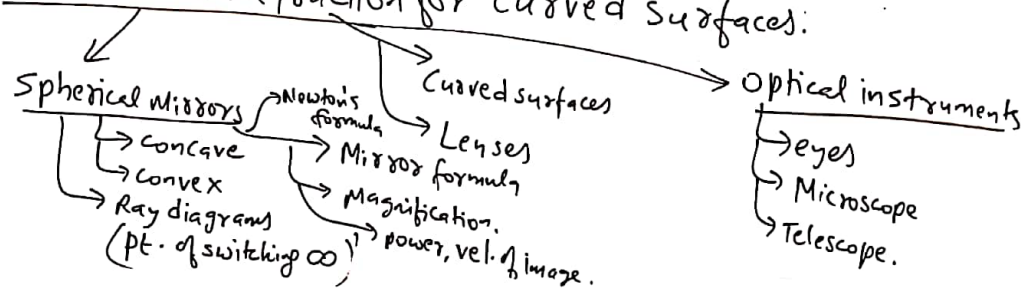 for curved surfaces.
Spherical Mirrors
Concave
Convex
Ray diagrams
(pt. of switching ∞)
Newton's
formula
Mirror formula
Magnification.
power, vel. of image.
Curved surfaces
Lenses
Optical instruments
eyes
Microscope
Telescope.